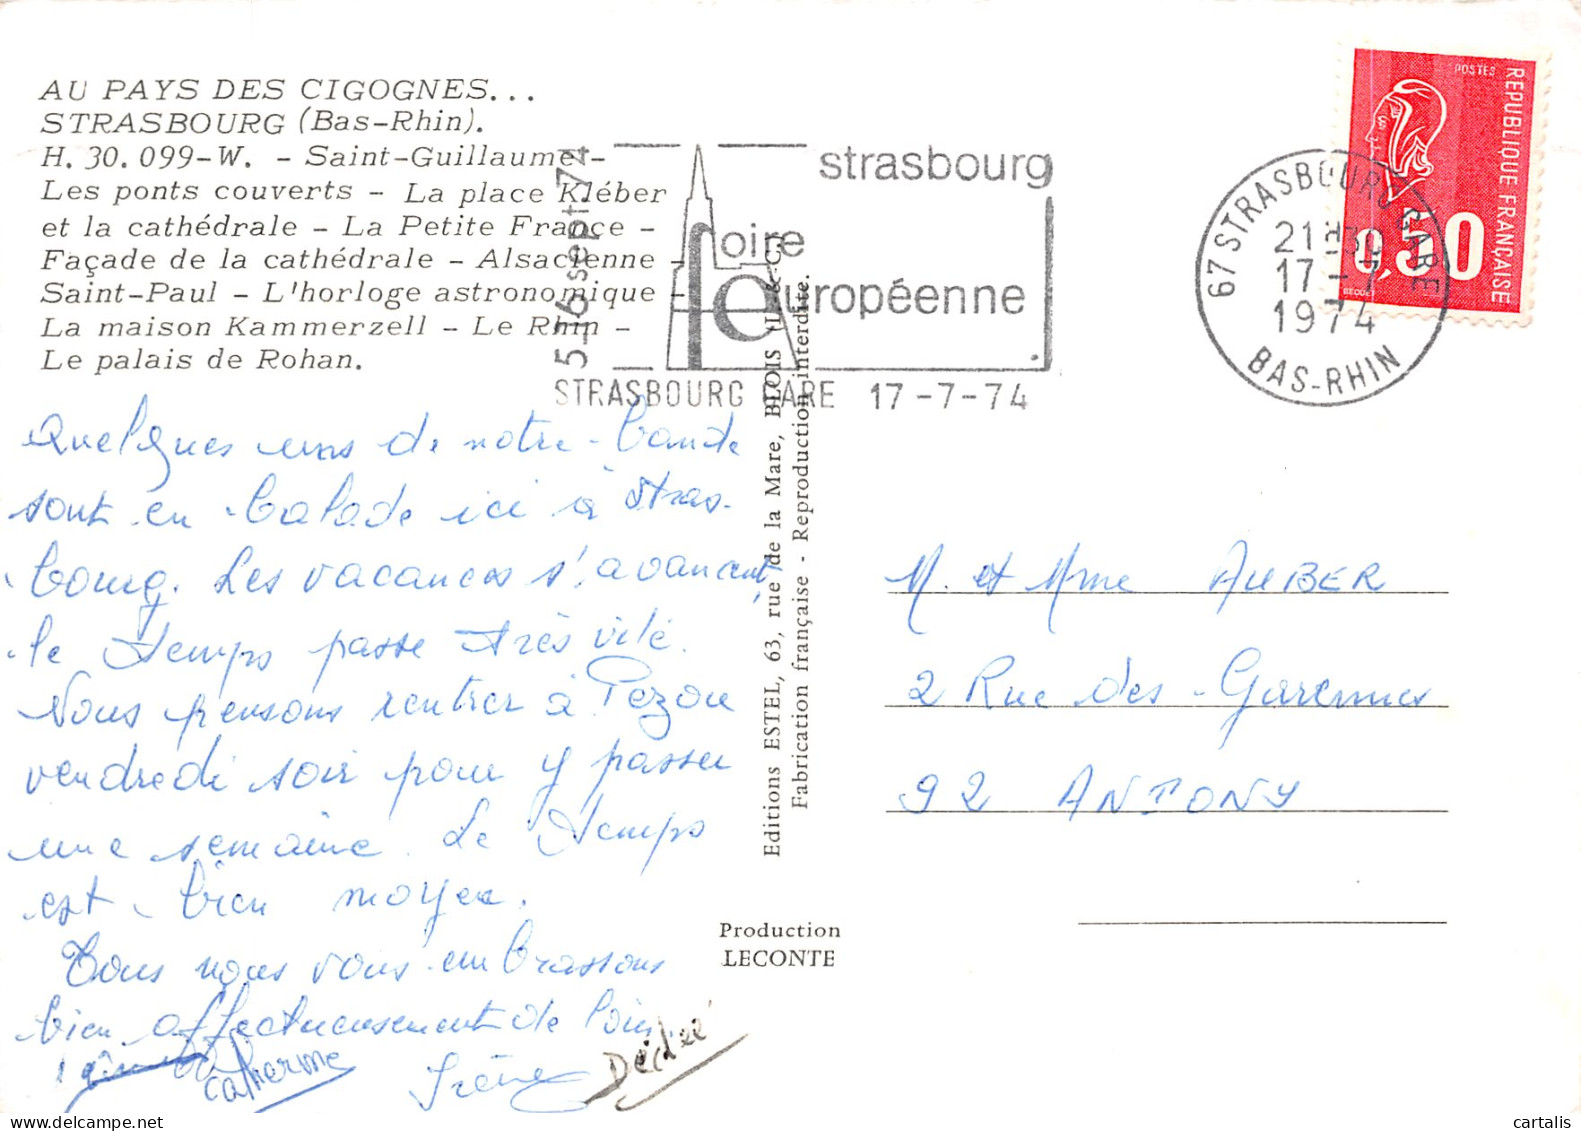 AU PAYS DES CIGOGNES...
STRASBOURG (Bas-Rhin).
H. 30.099-W. - Saint-Guillaume -
Les ponts couverts - La place Kléber
et la cathédrale - La Petite France -
Façade de la cathédrale - Alsacienne -
Saint-Paul - L'horloge astronomique -
La maison Kammerzell - Le Rhin -
Le palais de Rohan.
5-16 sept 74
strasbourg
foire
européenne
STRASBOURG GARE 17-7-74
67 STRASBOURG GARE
21H30
17-7
1974
BAS-RHIN
POSTES
REPUBLIQUE FRANÇAISE
0,50
BEQUET
Quelques uns de notre bande
sont en balade ici à Stras-
bourg. Les vacances s'avancent,
le temps passe très vite.
Nous pensons rentrer à Pezou
vendredi soir pour y passer
une semaine. Le temps
est bien moyen.
Tous nous vous embrassons
bien affectueusement de loin.
Catherine
Irène
Dédée
Editions ESTEL, 63, rue de la Mare, BLOIS (L.-&-C.)
Fabrication française - Reproduction interdite.
Production
LECONTE
M. et Mme AUBER
2 Rue des Garennes
92 ANTONY
cartalis